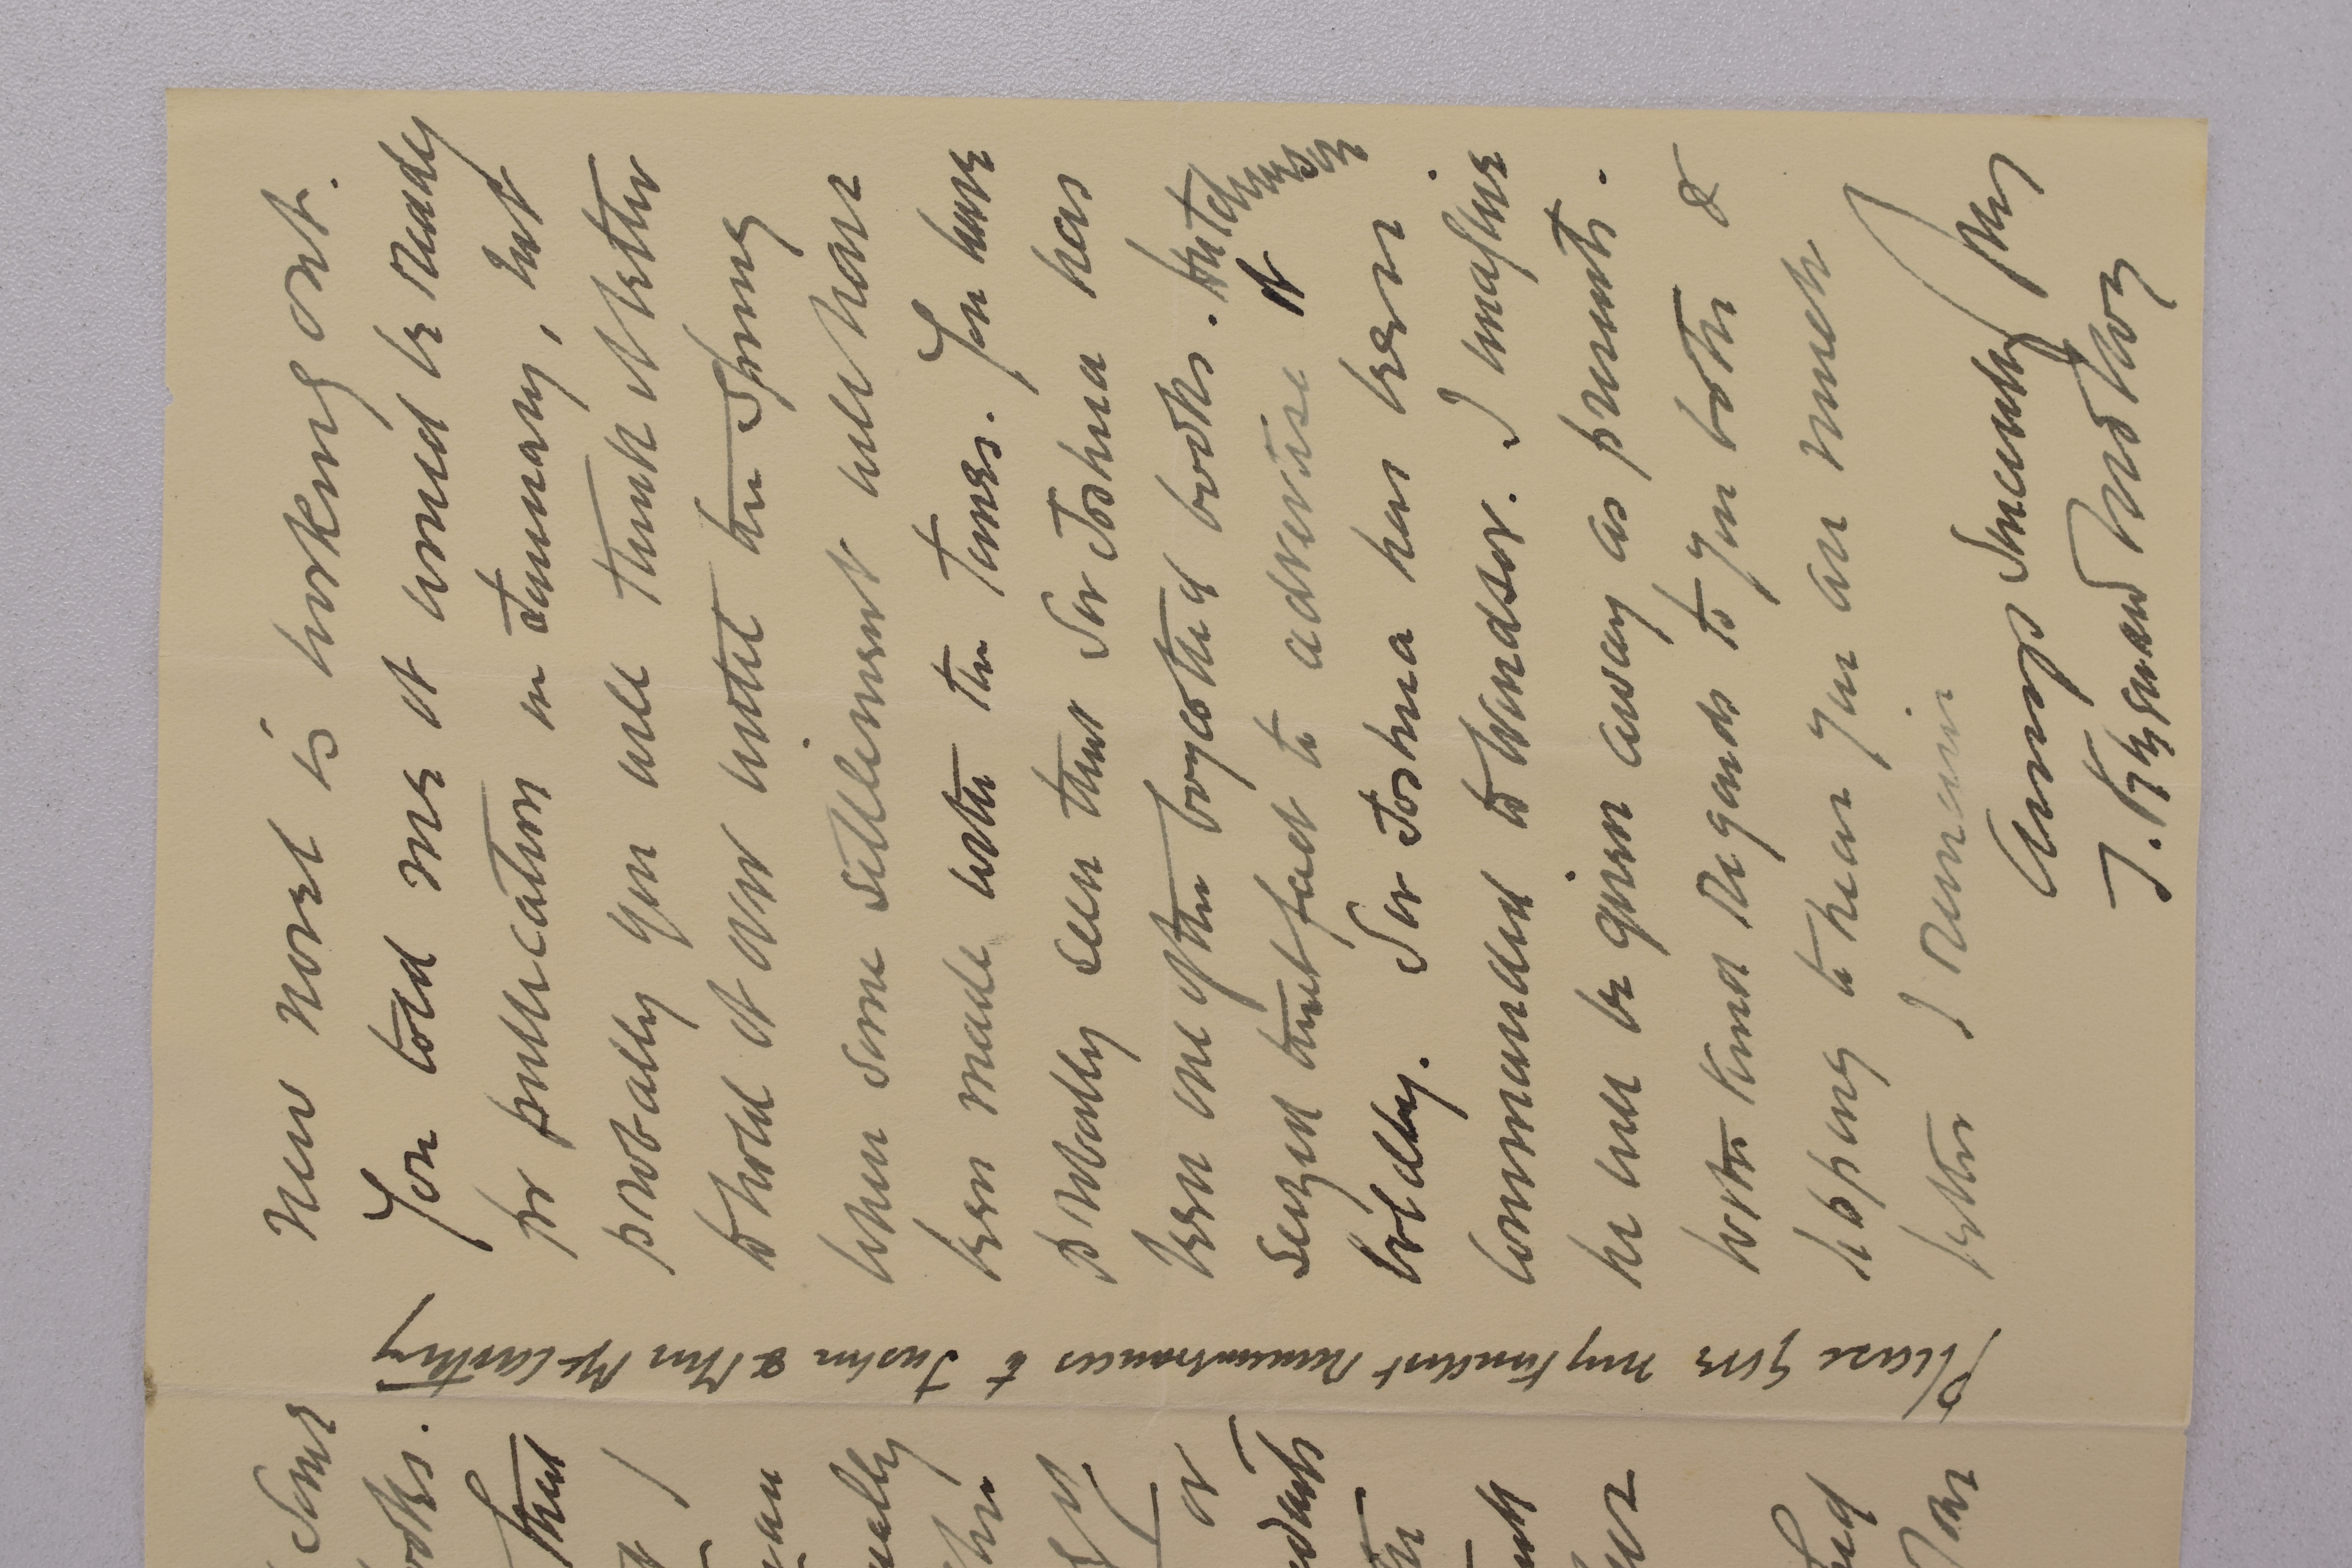 new novel is working out.
You told me it would be ready
for publication in January, but
probably you will think it better
to hold it over until the Spring
when some settlement will have
been made with the Times. You have
probably seen that Sir Joshua has
been one of the boycotted books. but Dents
seized that fact to advertise it on
boldly. Sir Joshua has been
commanded to Windsor. I imagine
he will be given away as presents.
with kind regards to you both &
hoping to hear you are much
better I remain
Always Sincerely yrs
J. Fitzgerald Molloy
Please give my kindest remembrances to Justin & Miss McCarthy
Some
books.
that
I
or
had